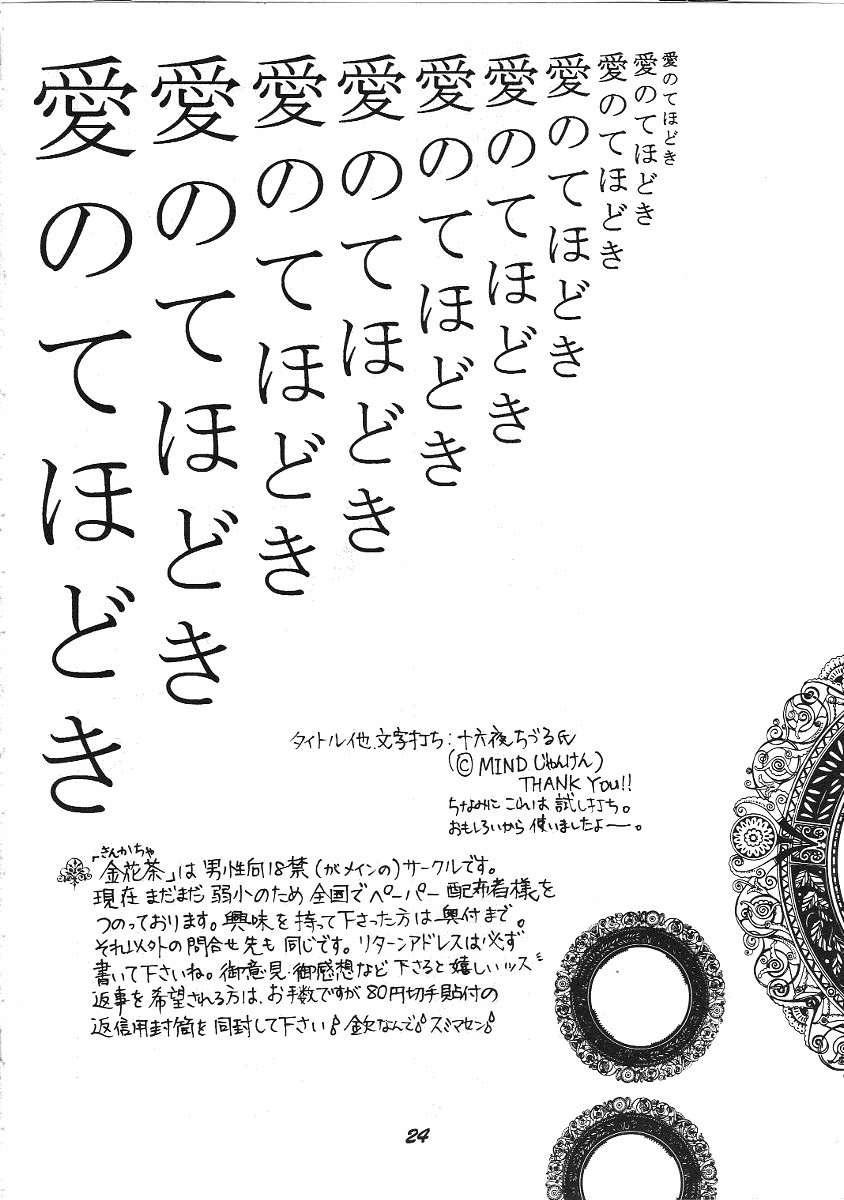 愛のてほどき
愛のてほどき
愛のてほどき
愛のてほどき
愛のてほどき
愛のてほどき
愛のてほどき
愛のてほどき
愛のてほどき
愛のてほどき
タイトル他、文字打ち：十六夜ちづる氏
(© MINDじゃんけん)
THANK YOU!!
ちなみに これは 試し打ち。
おもしろいから 使いましたよー。
きんかちゃ
「金花茶」は 男性向18禁 (がメインの) サークルです。
現在 まだまだ 弱小のため 全国で ペーパー 配布者様を
つのっております。興味を 持って下さった方は 奥付まで。
それ以外の問合せ先も 同じです。リターンアドレスは必ず
書いて下さいね。御意見・御感想など 下さると 嬉しいッス
返事を希望される方は、お手数ですが 80円切手貼付の
返信用封筒を同封して下さい♪ 金欠なんで♪ スミマセン♪
24